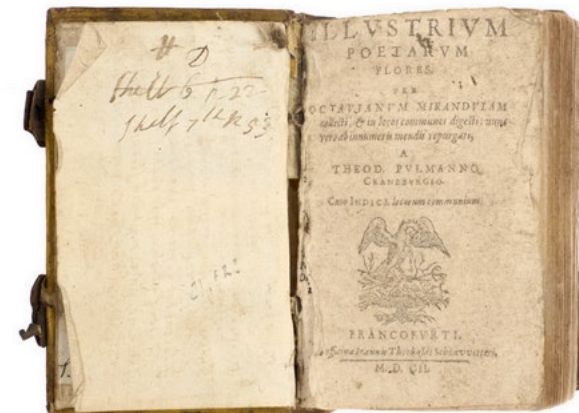 D
Shelf
Shelf 7
ILLVSTRIVM
POETARVM
FLORES.
PER
OCTAVIANVM MIRANDVLAM
collecti, & in locos communes digesti: nunc
vero ab innumeris mendis repurgati,
A
THEOD. PVLMANNO
CRANEBVRGIO.
Cum INDICE locorum communium.
FRANCOFVRTI,
officina Ioannis
M. D. CII.